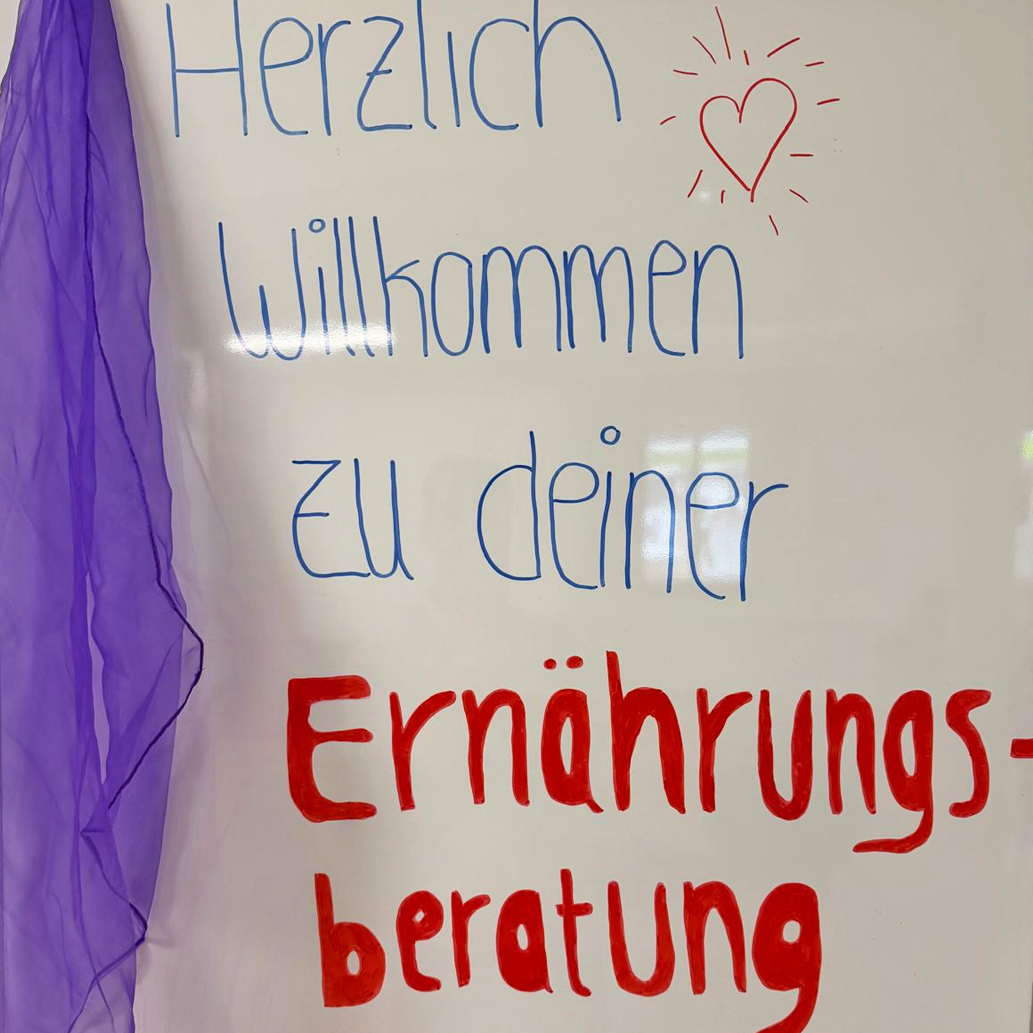 Herzlich
Willkommen
zu deiner
Ernährungs-
beratung